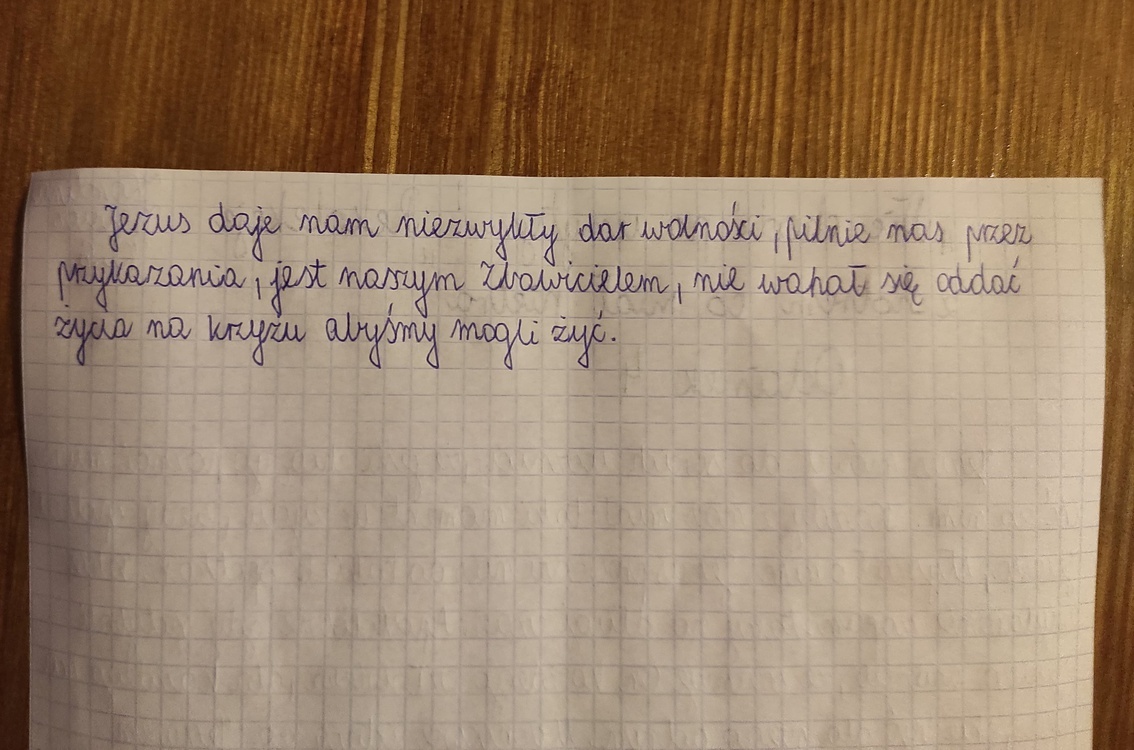 Jezus daje nam niezwykły dar wolności, pilnie nas przez
przykazania, jest naszym Zbawicielem, nie wahał się oddać
życia na krzyżu abyśmy mogli żyć.